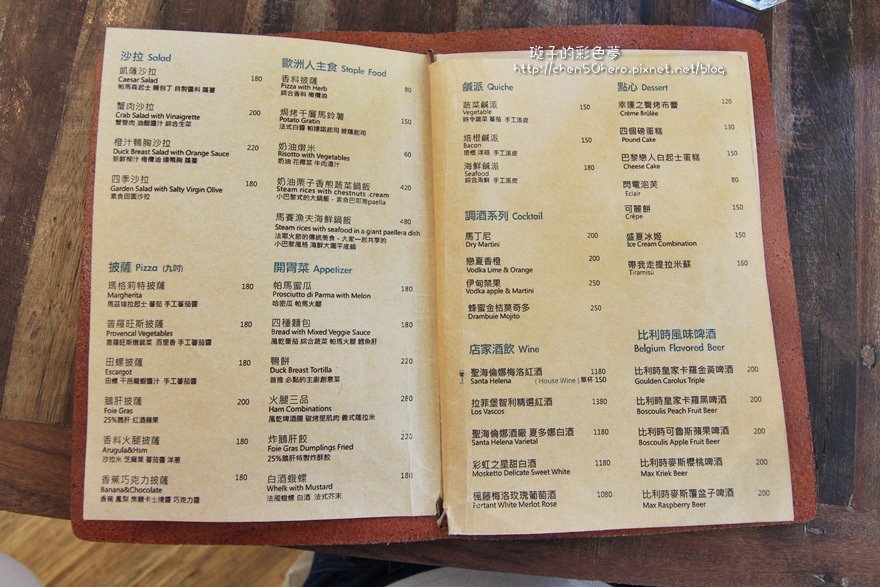 璇子的彩色夢
http://chen50hero.pixnet.net/blog
沙拉 Salad
凱薩沙拉 180
Caesar Salad
帕馬森起士 麵包丁 自製醬料 蘿蔓
蟹肉沙拉 200
Crab Salad with Vinaigrette
蟹管肉 油醋醬汁 綜合生菜
橙汁鴨胸沙拉 240
Duck Breast Salad with Orange Sauce
新鮮柳汁 橄欖油 燻鴨胸 蘿蔓
四季沙拉 180
Garden Salad with Salty Virgin Olive
素食田園沙拉
披薩 Pizza (九吋)
瑪格莉特披薩 180
Margherita
馬茲瑞拉起士 蕃茄 手工蕃茄醬
普羅旺斯披薩 180
Provencal Vegetables
普羅旺斯燉蔬菜 百里香 手工蕃茄醬
田螺披薩 220
Escargot
田螺 干邑龍蝦醬汁 手工蕃茄醬
鵝肝披薩 220
Foie Gras
25%鵝肝 紅酒蘋果
香料火腿披薩 200
Arugula&Hsm
沙拉米 芝麻葉 蕃茄醬 洋蔥
香蕉巧克力披薩 200
Banana&Chocolate
香蕉 鳳梨 焦糖卡士達醬 巧克力醬
歐洲人主食 Staple Food
香料披薩 80
Pizza with Herb
綜合香料 橄欖油
焗烤千層馬鈴薯 150
Potato Gratin
法式白醬 帕瑪諾起司 披薩起司
奶油燉米 60
Risotto with Vegetables
奶油 花椰菜 牛肉濃汁
奶油栗子香煎蔬菜鍋飯 420
Steam rices with chestnuts .cream
小巴黎式的大鍋飯 - 素食巴耶雅paella
馬賽漁夫海鮮鍋飯 480
Steam rices with seafood in a giant paellera dish
法耶火節的傳統美食 - 大家一起共享的
小巴黎風格 海鮮大圓平底鍋
開胃菜 Appetizer
帕馬蜜瓜 180
Prosciutto di Parma with Melon
哈密瓜 帕馬火腿
四種麵包 180
Bread with Mixed Veggie Sauce
風乾番茄 綜合蔬菜 帕馬火腿 鱈魚肝
鴨餅 220
Duck Breast Tortilla
首推 必點的主廚創意菜
火腿三品 280
Ham Combinations
風乾啤酒腸 碳烤里肌肉 義式薩拉米
炸鵝肝餃 220
Foie Gras Dumplings Fried
25%鵝肝特製炸酥餃
白酒蛾螺 180
Whelk with Mustard
法國蛾螺 白酒 法式芥末
鹹派 Quiche
蔬菜鹹派 150
Vegetable
時令蔬菜 蕃茄 手工派皮
培根鹹派 150
Bacon
培根 洋菇 手工派皮
海鮮鹹派 180
Seafood
綜合海鮮 手工派皮
調酒系列 Cocktail
馬丁尼 200
Dry Martini
戀夏香橙 200
Vodka Lime & Orange
伊甸禁果 250
Vodka apple & Martini
蜂蜜金桔莫奇多 250
Drambuie Mojito
店家酒飲 Wine
聖海倫娜梅洛紅酒 1180
Santa Helena ( House Wine ) 單杯 150
拉菲堡智利精選紅酒 1380
Los Vascos
聖海倫娜酒廠 夏多娜白酒 1180
Santa Helena Varietal
彩虹之星甜白酒 1180
Mosketto Delicate Sweet White
楓藤梅洛玫瑰葡萄酒 1080
Fortant White Merlot Rose
點心 Dessert
幸運之聲烤布蕾 120
Crème Brûlée
四個磅蛋糕 130
Pound Cake
巴黎戀人白起士蛋糕 150
Cheese Cake
閃電泡芙 80
Eclair
可麗餅 150
Crêpe
盛夏冰姬 150
Ice Cream Combination
帶我走提拉米蘇 160
Tiramisu
比利時風味啤酒
Belgium Flavored Beer
比利時皇家卡羅金黃啤酒 200
Goulden Carolus Triple
比利時皇家卡羅黑啤酒 200
Boscoulis Peach Fruit Beer
比利時可魯斯蘋果啤酒 200
Boscoulis Apple Fruit Beer
比利時麥斯櫻桃啤酒 200
Max Kriek Beer
比利時麥斯覆盆子啤酒 200
Max Raspberry Beer